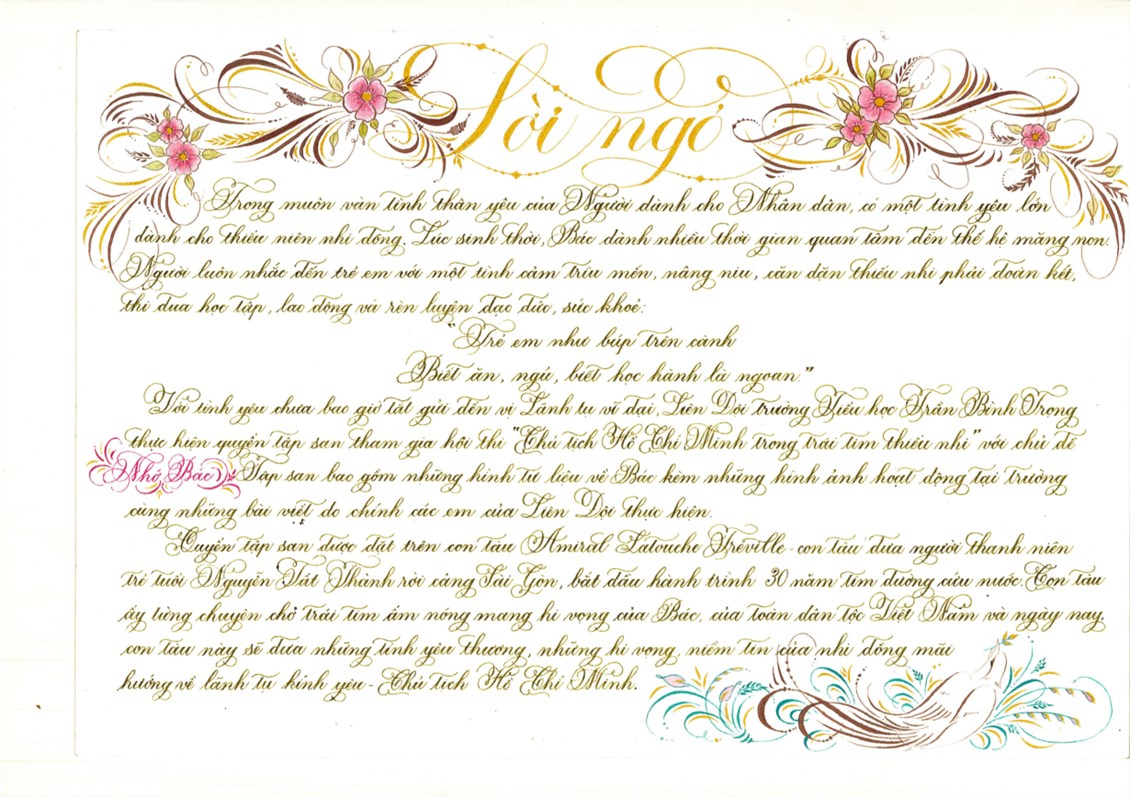 Lời ngỏ
Trong muôn vàn tình thân yêu của Người dành cho Nhân dân, có một tình yêu lớn
dành cho thiếu niên nhi đồng. Lúc sinh thời, Bác dành nhiều thời gian quan tâm đến thế hệ măng non.
Người luôn nhắc đến trẻ em với một tình cảm trìu mến, nâng niu, căn dặn thiếu nhi phải đoàn kết,
thi đua học tập, lao động và rèn luyện đạo đức, sức khoẻ:
"Trẻ em như búp trên cành
Biết ăn, ngủ, biết học hành là ngoan."
Với tình yêu chưa bao giờ tắt gửi đến vị Lãnh tụ vĩ đại, Liên Đội trường Tiểu học Trần Bình Trọng
thực hiện quyển tập san tham gia hội thi "Chủ tịch Hồ Chí Minh trong trái tim thiếu nhi" với chủ đề
Nhớ Bác. Tập san bao gồm những hình tư liệu về Bác kèm những hình ảnh hoạt động tại trường
cùng những bài viết do chính các em của Liên Đội thực hiện.
Quyển tập san được đặt trên con tàu Amiral Latouche Tréville - con tàu đưa người thanh niên
trẻ tuổi Nguyễn Tất Thành rời cảng Sài Gòn, bắt đầu hành trình 30 năm tìm đường cứu nước. Con tàu
ấy từng chuyên chở trái tim ấm nóng mang hi vọng của Bác, của toàn dân tộc Việt Nam và ngày nay,
con tàu này sẽ đưa những tình yêu thương, những hi vọng, niềm tin của nhi đồng mãi
hướng về lãnh tụ kính yêu - Chủ tịch Hồ Chí Minh.